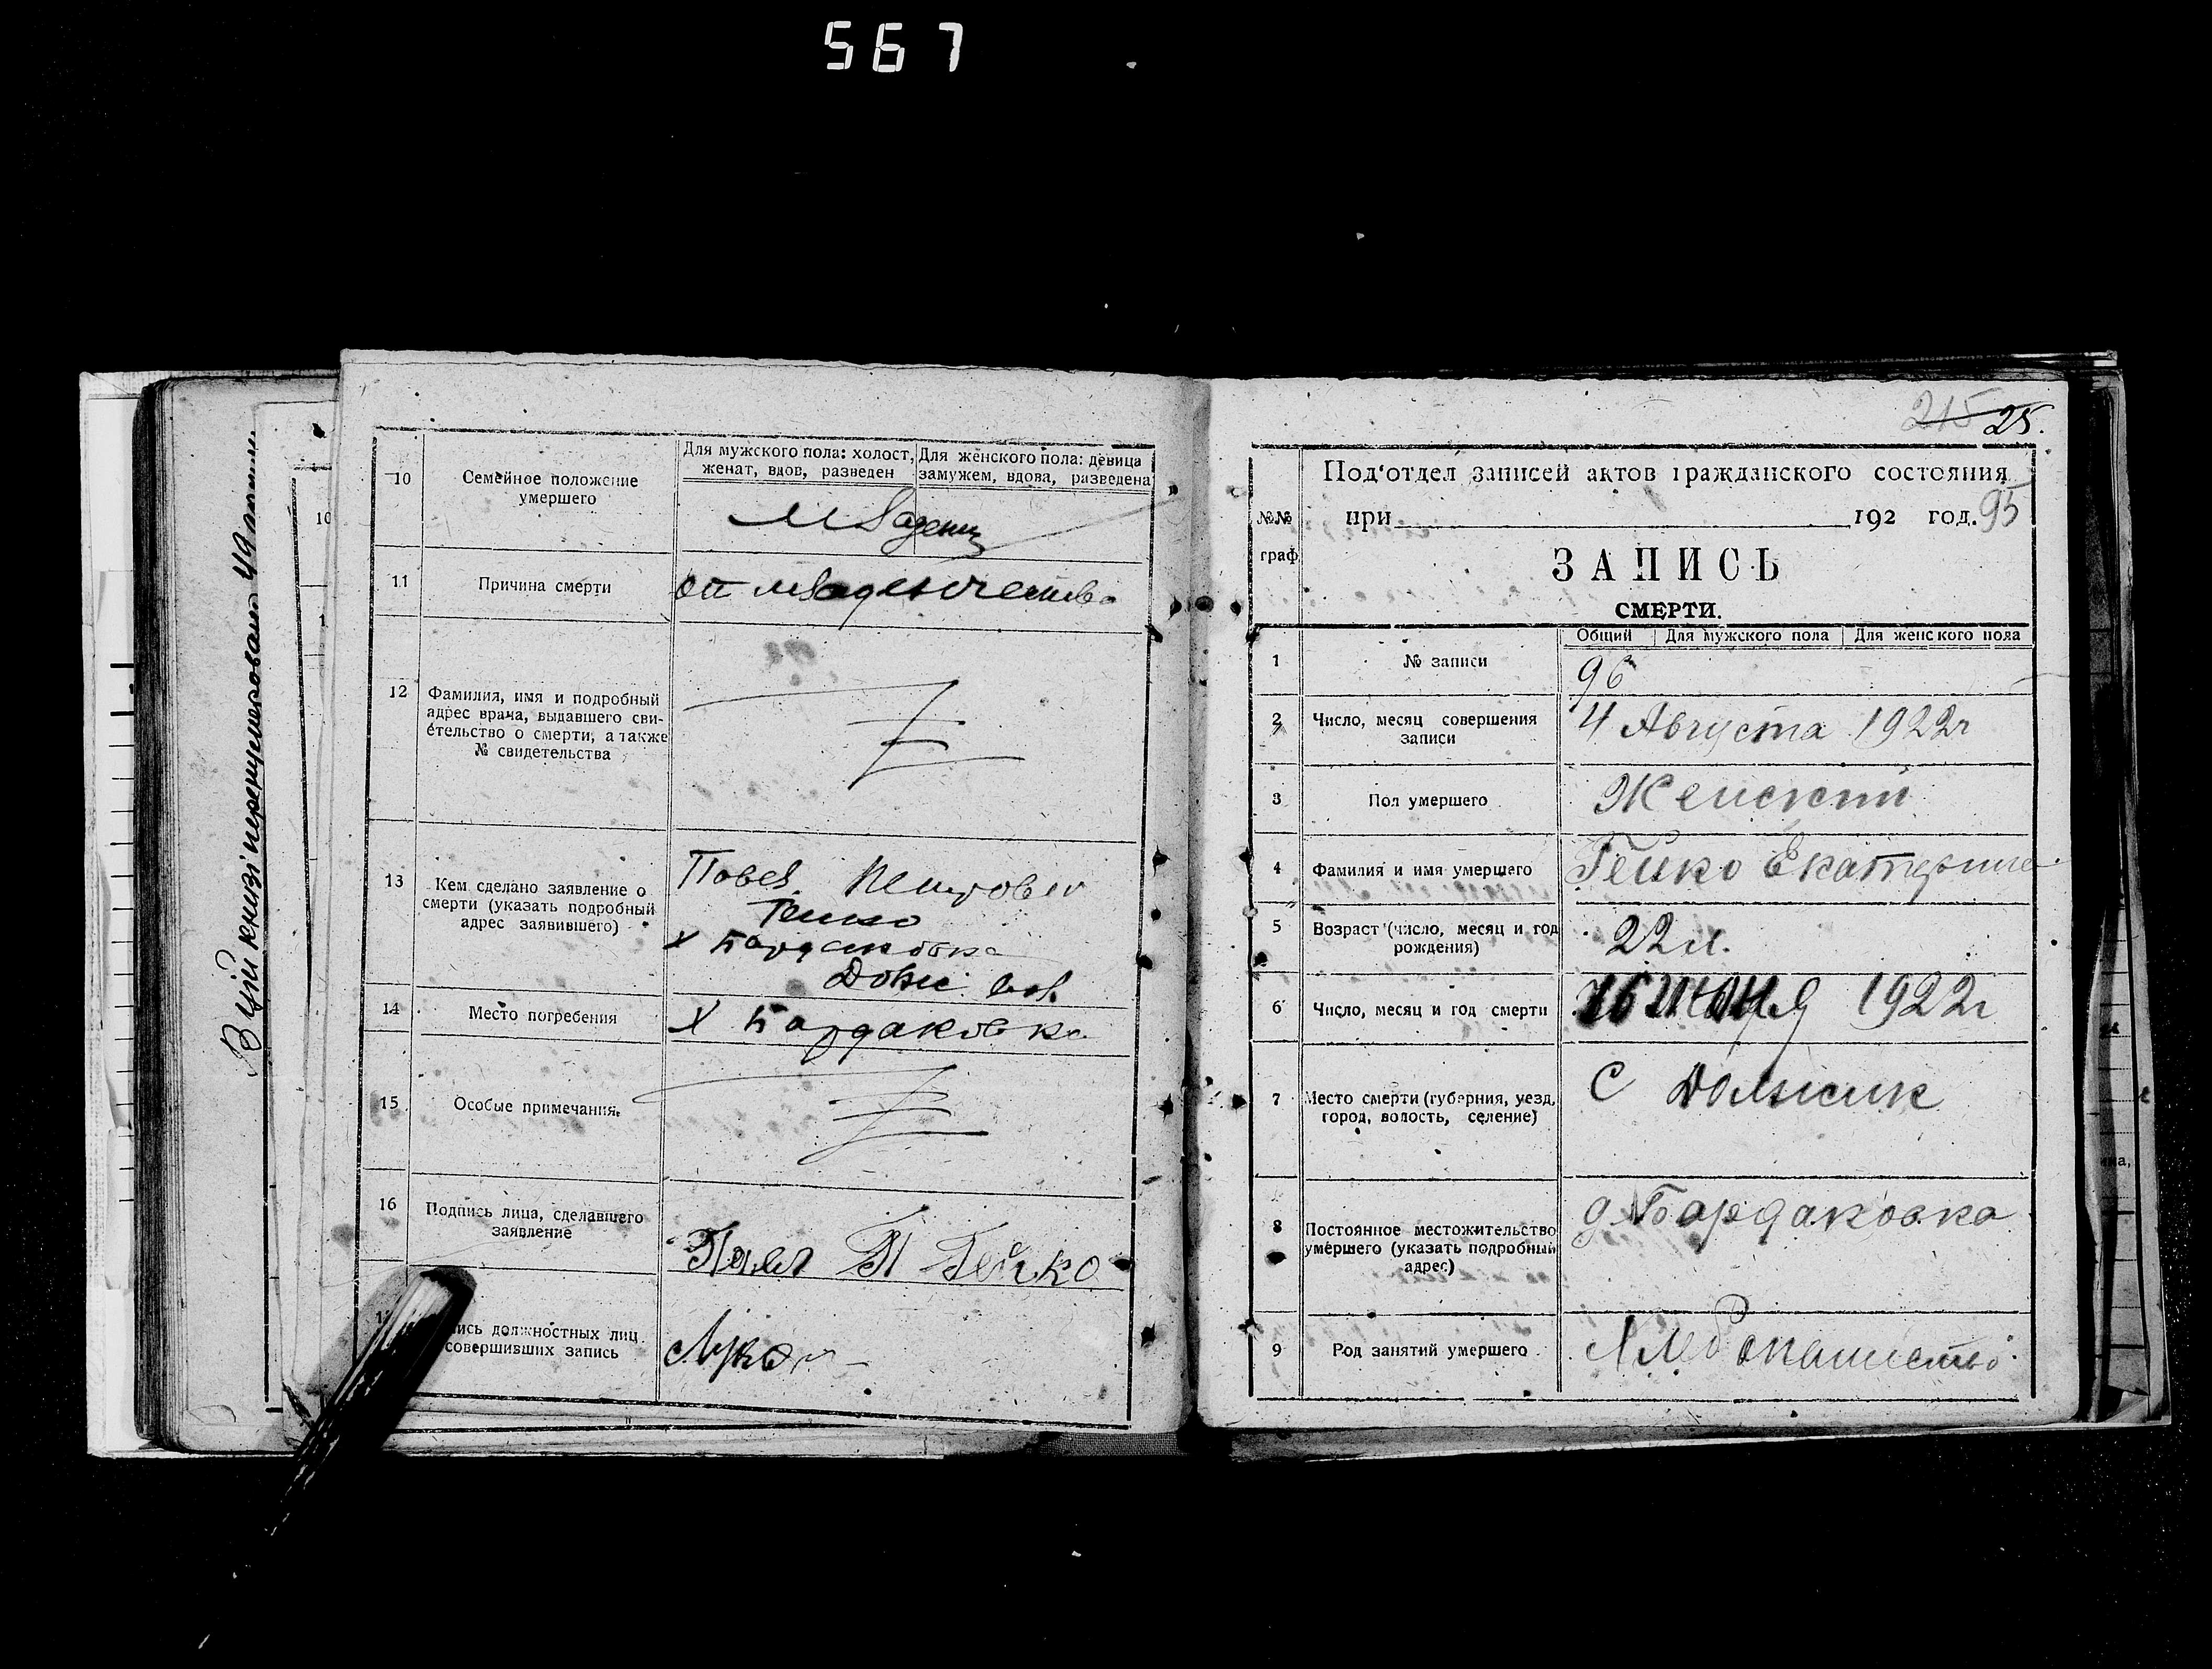 567
В цій книзі перенумеровано 49
10
Семейное положение
умершего
Для мужского пола: холост,
женат, вдов, разведен
Для женского пола: девица
замужем, вдова, разведена
младенец
11
Причина смерти
от младенчества
12
Фамилия, имя и подробный
адрес врача, выдавшего сви-
етельство о смерти, а также
№ свидетельства
13
Кем сделано заявление о
смерти (указать подробный
адрес заявившего)
Павел Петрович
Гейко
х Бардаковка
Долж вол.
14
Место погребения
х Бардаковка
15
Особые примечания.
16
Подпись лица, сделавшего
заявление
Павл П Гейко
ись должностных лиц
совершивших запись
215 25.
Под'отдел записей актов гражданского состояния
№№
граф
при 192 год. 95
ЗАПИСЬ
СМЕРТИ.
Общий Для мужского пола Для женского пола
1
№ записи
96
2
Число, месяц совершения
записи
4 Августа 1922г
3
Пол умершего
Женский
4
Фамилия и имя умершего
Гейко Екатерина
5
Возраст (число, месяц и год
рождения)
22 л.
6
Число, месяц и год смерти
1922г
7
Место смерти (губерния, уезд,
город, волость, селение)
С Должик
8
Постоянное местожительство
умершего (указать подробный
адрес)
д. Бардаковка
9
Род занятий умершего